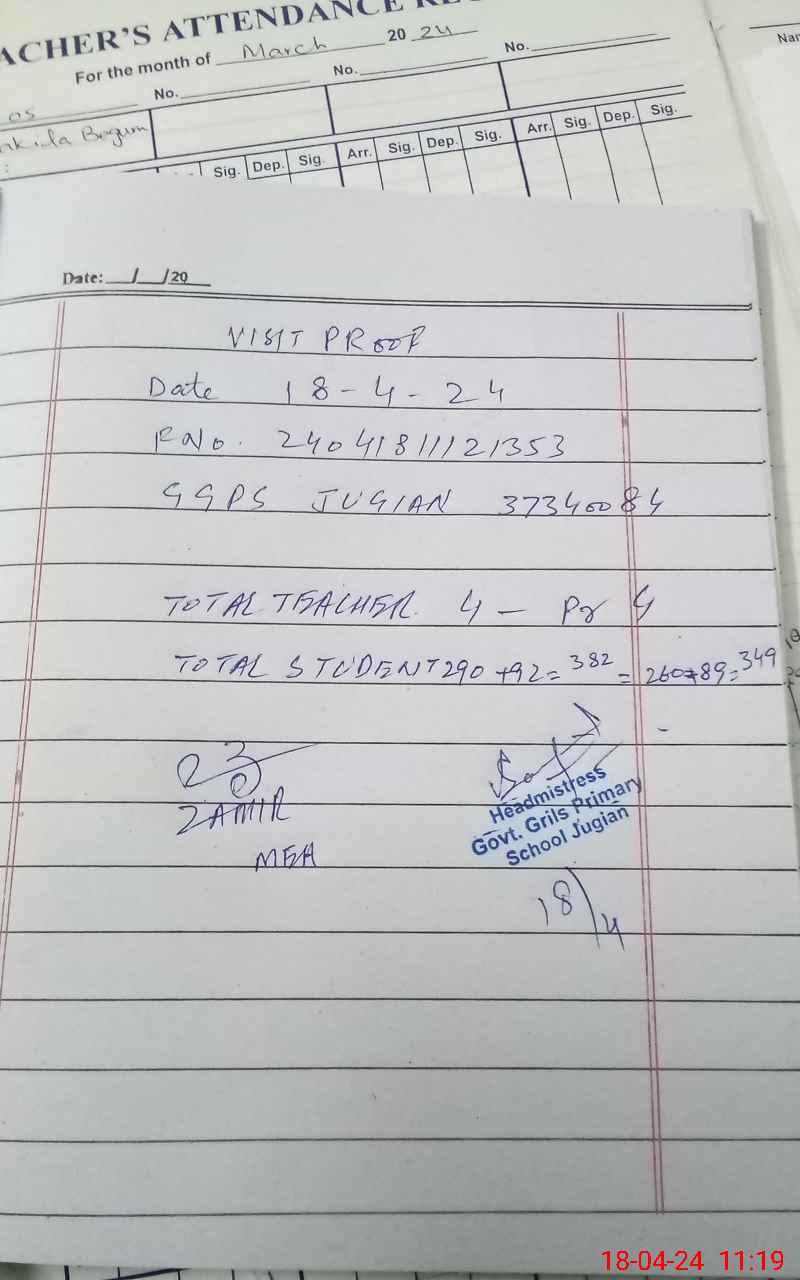 ACHER'S ATTENDANCE RE
For the month of March 20 24
No. No. No.
Begum
Sig. Dep. Sig. Arr. Sig. Dep. Sig. Arr. Sig. Dep. Sig.
Nar
Date: __/__/20__
VISIT PROOF
Date 18-4-24
R No. 24041811121353
GGPS JUGIAN 37340084
TOTAL TEACHER 4 - Pr 4
TOTAL STUDENT 290 +92= 382 = 260+89=349
ZAMIR
MEA
Headmistress
Govt. Grils Primary
School Jugian
18/4
18-04-24 11:19